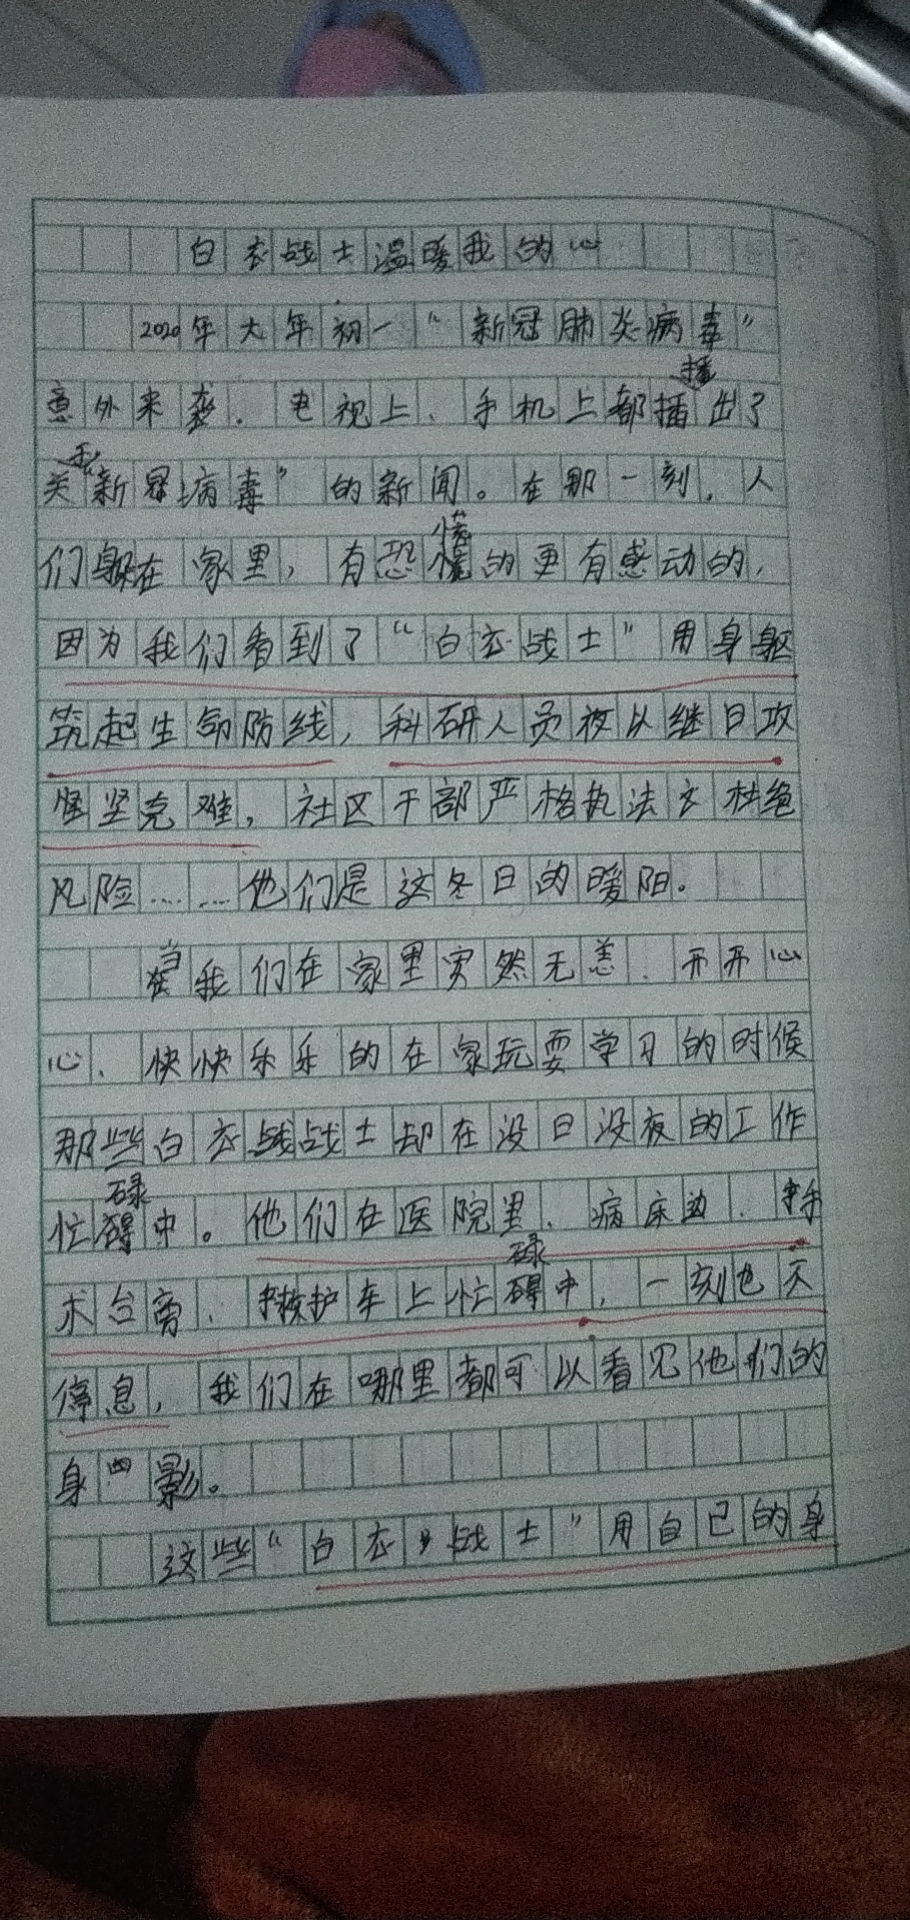 白衣战士温暖我的心
2020年大年初一“新冠肺炎病毒”
意外来袭.电视上、手机上都播出了
关于“新冠病毒”的新闻。在那一刻,人
们躲在家里,有恐慌的更有感动的,
因为我们看到了“白衣战士”用身躯
筑起生命防线,科研人员夜以继日攻
坚克难,社区干部严格执法杜绝
风险……他们是这冬日的暖阳.
当我们在家里安然无恙、开开心
心、快快乐乐的在家玩耍学习的时候
那些白衣战士却在没日没夜的工作
忙碌中。他们在医院里、病床边、手
术台旁、救护车上忙碌中,一刻也不
停息,我们在哪里都可以看见他们的
身影。
这些“白衣战士”用自己的身